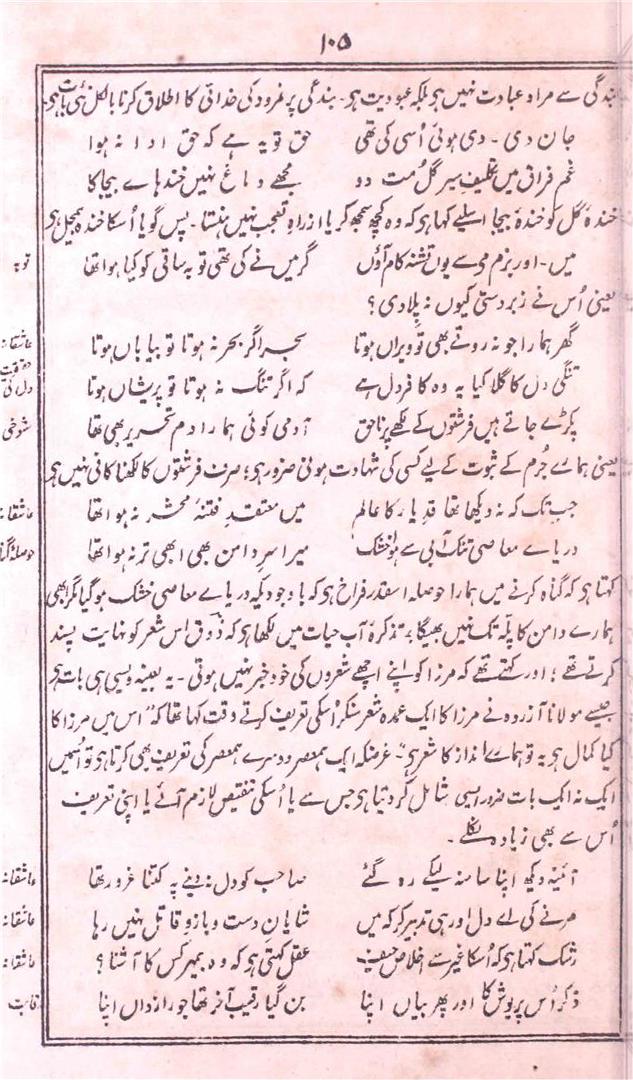 ۱۰۵
بندگی سے مراد عبادت نہیں ہی بلکہ عبودیت ہی۔ بندگی پر نمرود کی خدائی کا اطلاق کرنا بالکل نئی بات ہی۔
جان دی۔ دی ہوئی اُسی کی تھی حق تو یہ ہے کہ حق ادا نہ ہوا
غم فراق میں تکلیف سیر گل مت دو مجھے دماغ نہیں خندہاے بیجا کا
خندۂ گل کو خندۂ بیجا اسلیے کہا ہی کہ وہ کچھ سمجھ کر یا از راہ تعجب نہیں ہنستا۔ پس گویا اُسکا خندہ بیمحل ہی
میں۔ اور بزم مے سے یوں تشنہ کام آؤں گر میں نے کی تھی توبہ ساقی کو کیا ہوا تھا
توبہ
یعنی اُس نے زبردستی کیوں نہ پلا دی؟
گھر ہمارا جو نہ روتے بھی تو ویراں ہوتا بحر اگر بحر نہ ہوتا تو بیاباں ہوتا
عاشقانہ
تنگی دل کا گلا کیا یہ وہ کافر دل ہے کہ اگر تنگ نہ ہوتا تو پریشاں ہوتا
حقیقت دل کی
پکڑے جاتے ہیں فرشتوں کے لکھے پر ناحق آدمی کوئی ہمارا دم تحریر بھی تھا
شوخی
یعنی ہمارے جُرم کے ثبوت کے لیے کسی کی شہادت ہونی ضرور ہی؛ صرف فرشتوں کا لکھنا کافی نہیں ہی
جب تک کہ نہ دیکھا تھا قدِ یار کا عالم میں معتقدِ فتنۂ محشر نہ ہوا تھا
عاشقانہ
دریاے معاصی تنک آبی سے ہوا خشک میرا سرِ دامن بھی ابھی تر نہ ہوا تھا
حوصلۂ گناہ
کہتا ہی کہ گناہ کرنے میں ہمارا حوصلہ اسقدر فراخ ہی کہ باوجودیکہ دریاے معاصی خشک ہو گیا مگر ابھی
ہمارے دامن کا پلّہ تک نہیں بھیگا؛ تذکرۂ آب حیات میں لکھا ہی کہ ذوق اس شعر کو نہایت پسند
کرتے تھے؛ اور کہتے تھے کہ مرزا کو اپنے اچھے شعروں کی خود خبر نہیں ہوتی۔ یہ بعینہ ویسی ہی بات ہی
جیسے مولانا آزردہ نے مرزا کا ایک عمدہ شعر سنکر اُسکی تعریف کرتے وقت کہا تھا کہ "اس میں مرزا کا
کیا کمال ہی یہ تو ہمارے انداز کا شعر ہی"۔ غرضکہ ایک ہمعصر دوسرے ہمعصر کی تعریف بھی کرتا ہی تو اُسمیں
ایک نہ ایک بات ضرور ایسی شامل کر دیتا ہی جس سے یا اُسکی تنقیص لازم آئے یا اپنی تعریف
اُس سے بھی زیادہ نکلے۔
آئینہ دیکھ اپنا سا منہ لیکے رہ گئے صاحب کو دل نہ دینے پہ کتنا غرور تھا
عاشقانہ
مرنے کی اے دل اور ہی تدبیر کر کہ میں شایانِ دست و بازو قاتل نہیں رہا
عاشقانہ
رشک کہتا ہی کہ اُسکا غیر سے اخلاص حیف عقل کہتی ہی کہ وہ بیمہر کس کا آشنا؟
عاشقانہ
ذکر اُس پریوش کا اور پھر بیاں اپنا بن گیا رقیب آخر تھا جو رازداں اپنا
رقابت